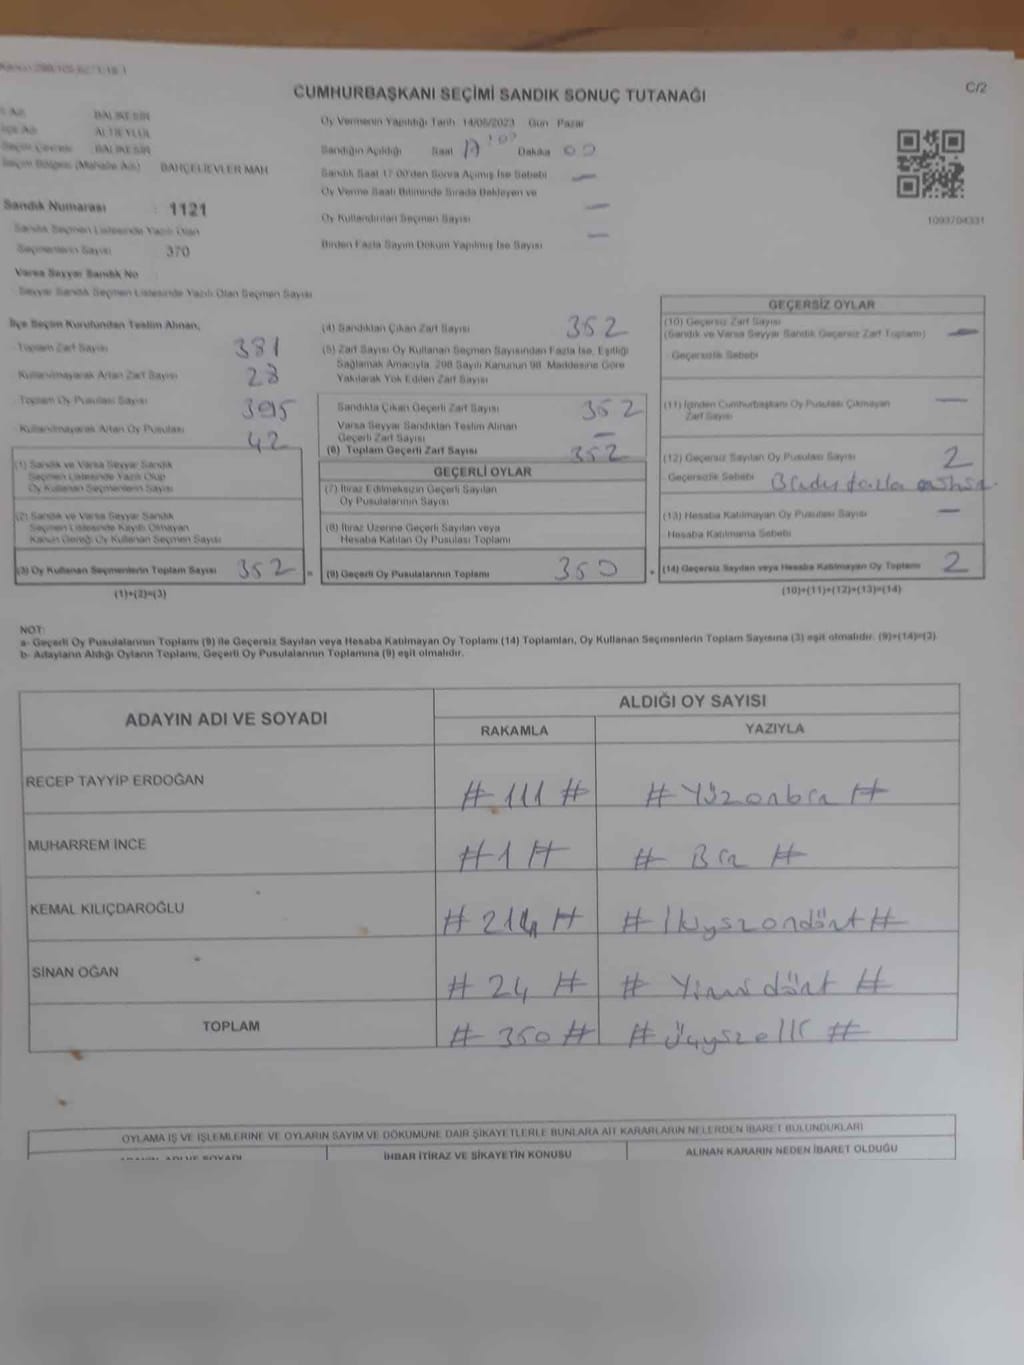 CUMHURBAŞKANI SEÇİMİ SANDIK SONUÇ TUTANAĞI
C/2
BALIKESİR
ALTIEYLÜL
BALIKESİR
Seçim Bölgesi (Mahalle Adı) BAHÇELİEVLER MAH
Sandık Numarası : 1121
Sandık Seçmen Listesinde Yazılı Olan
Seçmenlerin Sayısı 370
Varsa Seyyar Sandık No
Seyyar Sandık Seçmen Listesinde Yazılı Olan Seçmen Sayısı
Oy Vermenin Yapıldığı Tarih 14/05/2023 Gün Pazar
Sandığın Açıldığı Saat Dakika 00
Sandık Saat 17:00'den Sonra Açımış İse Sebebi —
Oy Verme Saati Bitiminde Sırada Bekleyen ve
Oy Kullandırılan Seçmen Sayısı —
Birden Fazla Sayım Döküm Yapılmış İse Sayısı —
1093704331
İlçe Seçim Kurulundan Teslim Alınan;
Toplam Zarf Sayısı 381
Kullanılmayarak Artan Zarf Sayısı 28
Toplam Oy Pusulası Sayısı 395
Kullanılmayarak Artan Oy Pusulası 42
(1) Sandık ve Varsa Seyyar Sandık
Seçmen Listesinde Yazılı Olup
Oy Kullanan Seçmenlerin Sayısı
(2) Sandık ve Varsa Seyyar Sandık
Seçmen Listesinde Kayıtlı Olmayan
Kanun Gereği Oy Kullanan Seçmen Sayısı
(3) Oy Kullanan Seçmenlerin Toplam Sayısı 352
(1)+(2)=(3)
(4) Sandıktan Çıkan Zarf Sayısı 352
(5) Zarf Sayısı Oy Kullanan Seçmen Sayısından Fazla İse, Eşitliği
Sağlamak Amacıyla, 298 Sayılı Kanunun 98. Maddesine Göre
Yakılarak Yok Edilen Zarf Sayısı
Sandıkta Çıkan Geçerli Zarf Sayısı 352
Varsa Seyyar Sandıktan Teslim Alınan
Geçerli Zarf Sayısı —
(6) Toplam Geçerli Zarf Sayısı 352
GEÇERLİ OYLAR
(7) İtiraz Edilmeksizin Geçerli Sayılan
Oy Pusulalarının Sayısı
(8) İtiraz Üzerine Geçerli Sayılan veya
Hesaba Katılan Oy Pusulası Toplamı
= (9) Geçerli Oy Pusulalarının Toplamı 350
GEÇERSİZ OYLAR
(10) Geçersiz Zarf Sayısı
(Sandık ve Varsa Seyyar Sandık Geçersiz Zarf Toplamı) —
Geçersizlik Sebebi
(11) İçinden Cumhurbaşkanı Oy Pusulası Çıkmayan
Zarf Sayısı —
(12) Geçersiz Sayılan Oy Pusulası Sayısı 2
Geçersizlik Sebebi Birden fazla mühür.
(13) Hesaba Katılmayan Oy Pusulası Sayısı —
Hesaba Katılmama Sebebi
+ (14) Geçersiz Sayılan veya Hesaba Katılmayan Oy Toplamı 2
(10)+(11)+(12)+(13)=(14)
NOT:
a- Geçerli Oy Pusulalarının Toplamı (9) ile Geçersiz Sayılan veya Hesaba Katılmayan Oy Toplamı (14) Toplamları, Oy Kullanan Seçmenlerin Toplam Sayısına (3) eşit olmalıdır. (9)+(14)=(3)
b- Adayların Aldığı Oyların Toplamı, Geçerli Oy Pusulalarının Toplamına (9) eşit olmalıdır.
ADAYIN ADI VE SOYADI ALDIĞI OY SAYISI
RAKAMLA YAZIYLA
RECEP TAYYİP ERDOĞAN # 111 # # Yüzonbir #
MUHARREM İNCE # 1 # # Bir #
KEMAL KILIÇDAROĞLU # 214 # # İkiyüzondört #
SİNAN OĞAN # 24 # # Yirmi dört #
TOPLAM # 350 # # Üçyüzelli #
OYLAMA İŞ VE İŞLEMLERİNE VE OYLARIN SAYIM VE DÖKÜMÜNE DAİR ŞİKAYETLERLE BUNLARA AİT KARARLARIN NELERDEN İBARET BULUNDUKLARI
ADAYIN ADI VE SOYADI İHBAR İTİRAZ VE ŞİKAYETİN KONUSU ALINAN KARARIN NEDEN İBARET OLDUĞU